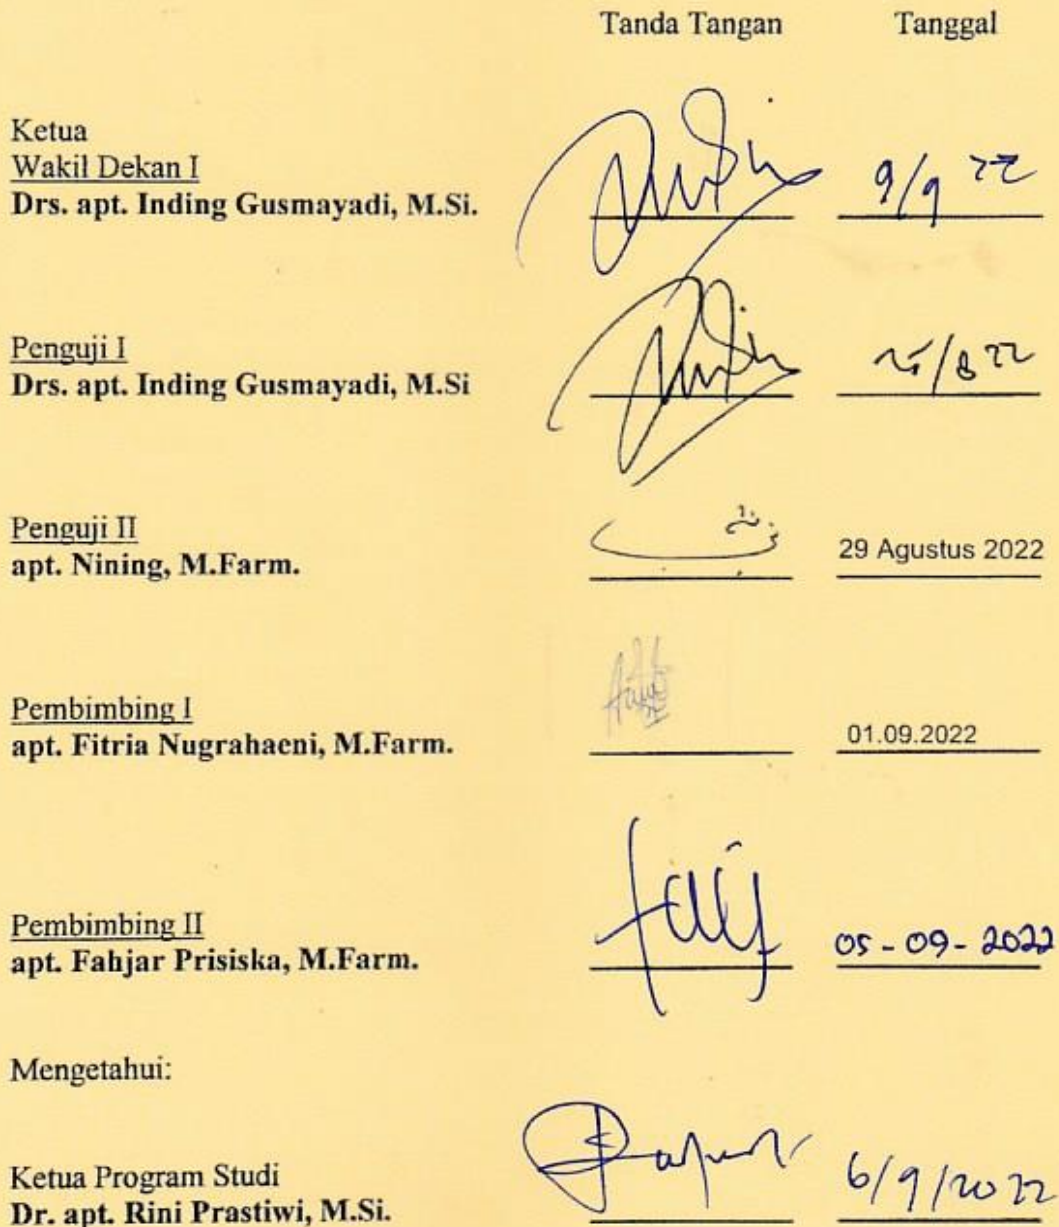 Tanda Tangan Tanggal
Ketua
Wakil Dekan I
Drs. apt. Inding Gusmayadi, M.Si. 9/9 22
Penguji I
Drs. apt. Inding Gusmayadi, M.Si 25/8 22
Penguji II
apt. Nining, M.Farm. 29 Agustus 2022
Pembimbing I
apt. Fitria Nugrahaeni, M.Farm. 01.09.2022
Pembimbing II
apt. Fahjar Prisiska, M.Farm. 05-09-2022
Mengetahui:
Ketua Program Studi
Dr. apt. Rini Prastiwi, M.Si. 6/9/2022